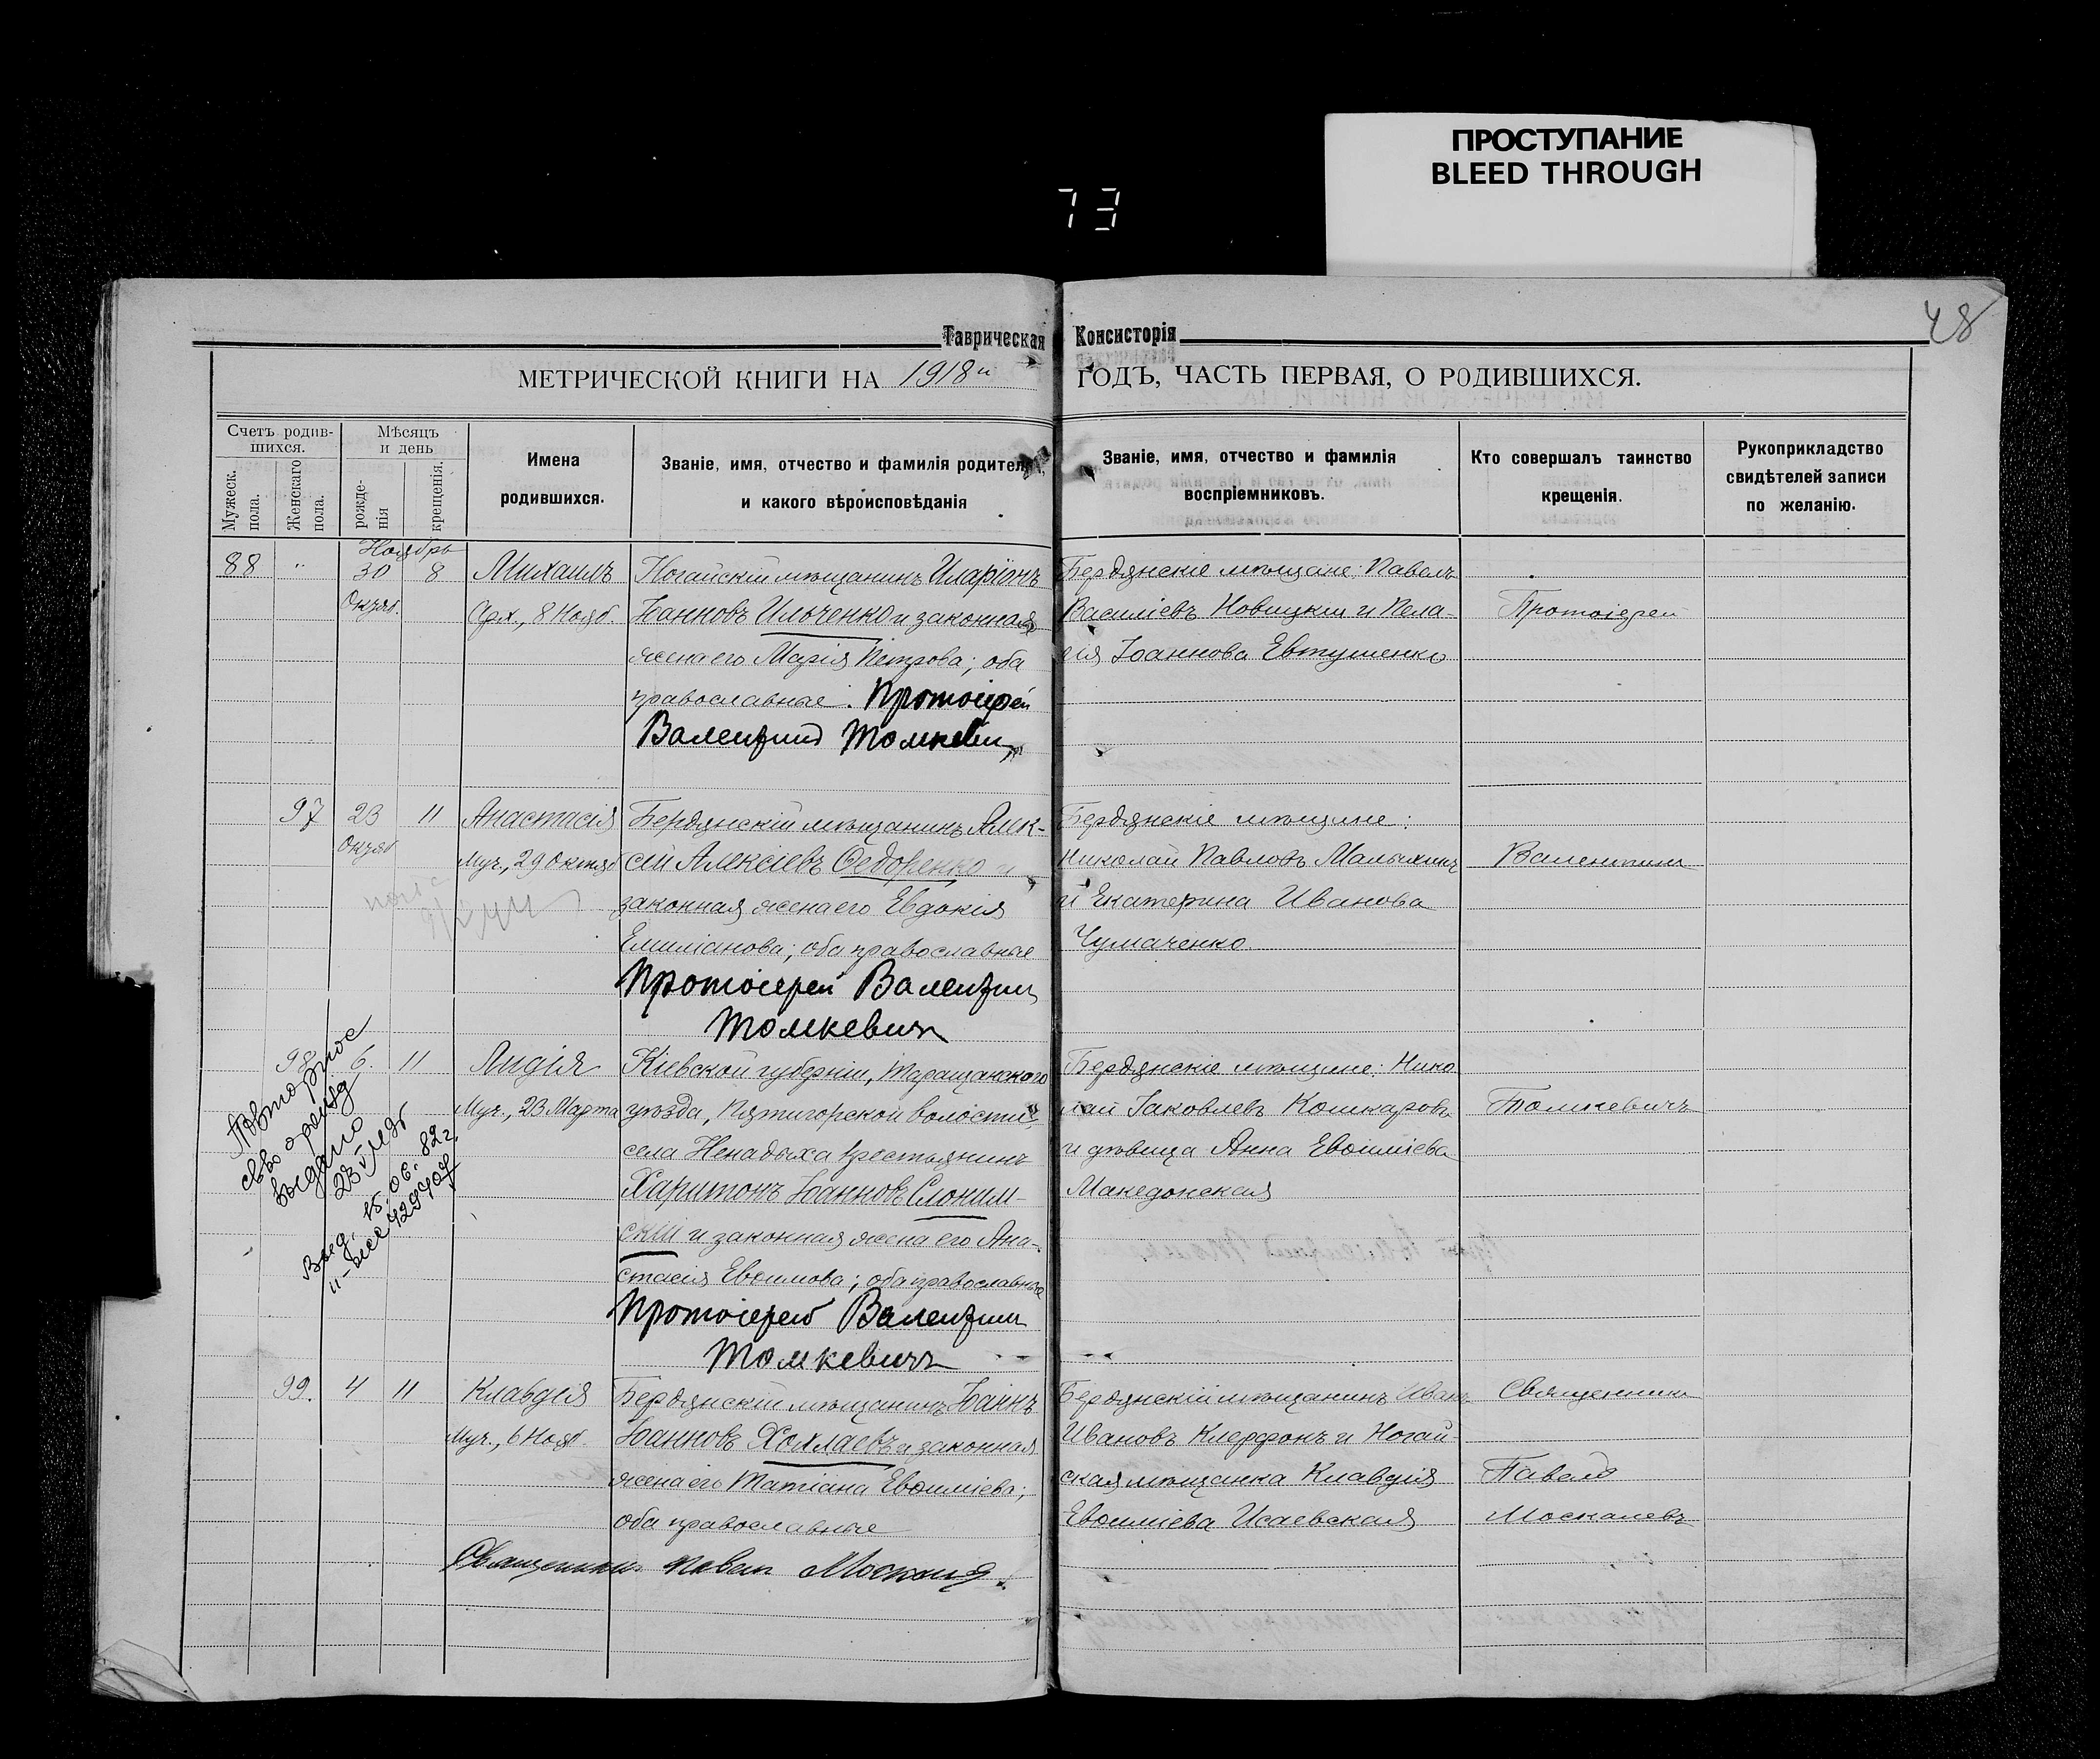 ПРОСТУПАНИЕ
BLEED THROUGH
73
48
Таврическая Консисторія
МЕТРИЧЕСКОЙ КНИГИ НА 1918й ГОДЪ, ЧАСТЬ ПЕРВАЯ, О РОДИВШИХСЯ.
Счетъ родив-
шихся.
Мужеск.
пола.
Женскаго
пола.
Мѣсяцъ
и день
рожде-
нія
крещенія.
Имена
родившихся.
Званіе, имя, отчество и фамилія родителей,
и какого вѣроисповѣданія
Званіе, имя, отчество и фамилія
воспріемниковъ.
Кто совершалъ таинство
крещенія.
Рукоприкладство
свидѣтелей записи
по желанію.
Ноябрь
88 " 30 8
Октяб.
Михаилъ
Арх., 8 Нояб.
Ногайскій мѣщанинъ Иларіонъ
Іоанновъ Ильченко и законная
жена его Марія Петрова; оба
православные. Протоіерей
Валентин Томкевич
Бердянскіе мѣщане: Павелъ
Василіевъ Новицкій и Пела-
гія Іоаннова Евтушенко
Протоіерей
97 23 11
Октяб
Анастасія
Муч., 29 Октяб
Бердянскій мѣщанинъ Алек-
сій Алексіевъ Ѳедоренко и
законная жена его Евдокія
Емиліанова; оба православные
Протоіерей Валентин
Томкевич
Бердянскіе мѣщане:
Николай Павловъ Малыхинъ
и Екатерина Иванова
Чумаченко
Валентин
98 6. 11
Лидія
Муч., 23 Марта
Кіевской губерніи, Таращанского
уѣзда, Пятигорской волости,
села Ненадыха крестьянинъ
Харитонъ Іоанновъ Слоним-
скій и законная жена его Ана-
стасія Евѳимова; оба православные
Протоіерей Валентин
Томкевичъ
Бердянскіе мѣщане: Нико
лай Іаковлевъ Кошкаровъ
и дѣвица Анна Евѳиміева
Македонская
Томкевичъ
Повторное
св-во о рожд
выдано
15.06.82г.
99. 4 11
Клавдія
Муч., 6 Нояб.
Бердянскій мѣщанинъ Іоаннъ
Іоанновъ Холлаевъ и законная
жена его Татіана Евѳиміева;
оба православные
Священникъ Павел
Бердянскій мѣщанинъ Иванъ
Ивановъ Клерфонъ и Ногай-
ская мѣщанка Клавдія
Евѳиміева Исаевская
Священникъ
Павелъ
Москалевъ